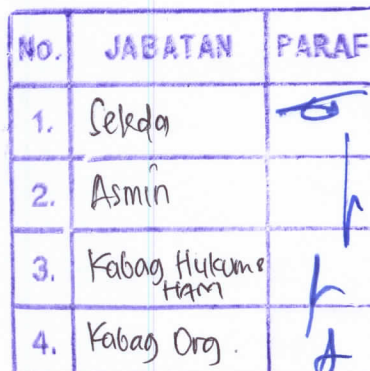 No. JABATAN PARAF
1. Sekda
2. Asmin
3. Kabag Hukum &
HAM
4. Kabag Org.